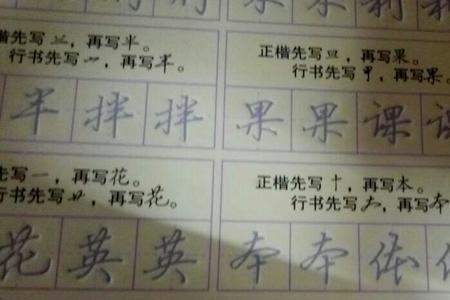 楷先写兰，再写半。
行书先写丷，再写半。
正楷先写旦，再写果。
行书先写甲，再写果。
半 拌 拌
果 果 课
先写一，再写花。
行书先写艹，再写花。
正楷先写十，再写本。
行书先写大，再写本
花 英 英
本 本 体